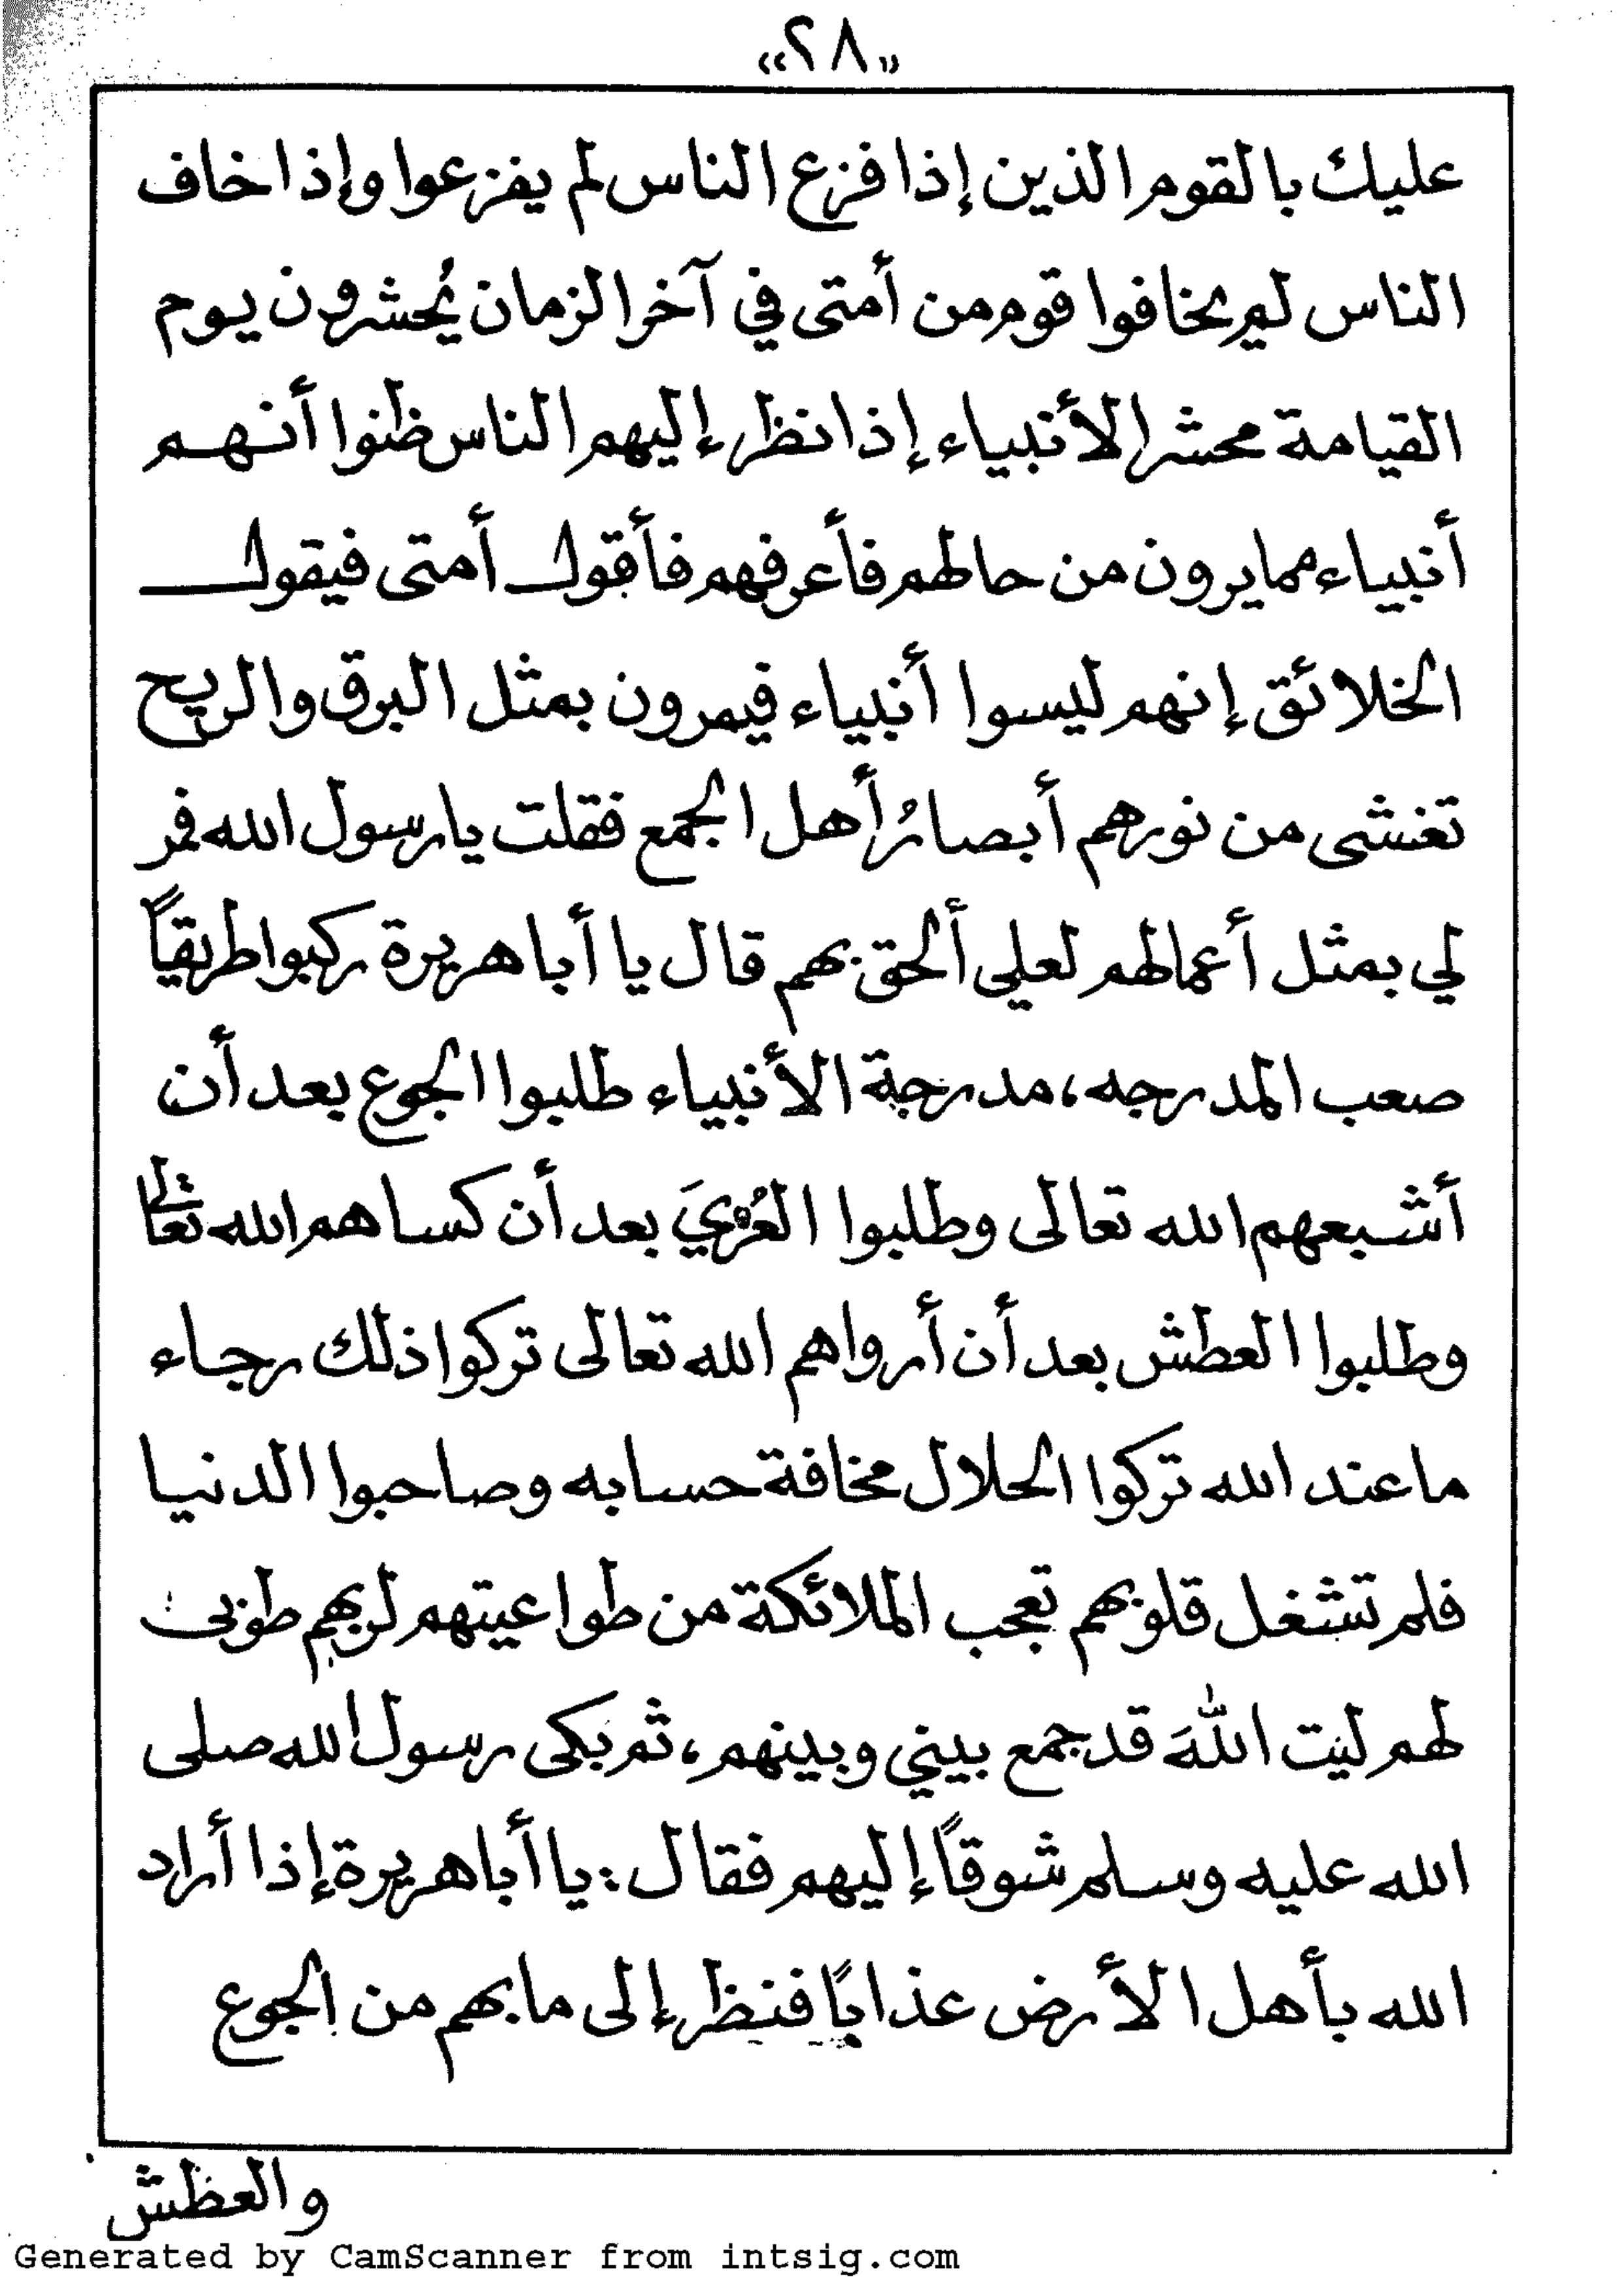 «٢٨»
عليك بالقوم الذين إذا فزع الناس لم يفزعوا وإذا خاف
الناس لم يخافوا قوم من أمتى في آخر الزمان يُحشرون يوم
القيامة محشر الأنبياء إذا نظر إليهم الناس ظنوا أنهم
أنبياء مما يرون من حالهم فأعرفهم فأقول أمتى فيقول
الخلائق إنهم ليسوا أنبياء فيمرون بمثل البرق والريح
تغشى من نورهم أبصارُ أهل الجمع فقلت يا رسول الله فمر
لي بمثل أعمالهم لعلى ألحق بهم قال يا أبا هريرة ركبوا طريقاً
صعب المدرجه، مدرجة الأنبياء طلبوا الجوع بعد أن
أشبعهم الله تعالى وطلبوا العُرْيَ بعد أن كساهم الله تعالى
وطلبوا العطش بعد أن أرواهم الله تعالى تركوا ذلك رجاء
ما عند الله تركوا الحلال مخافة حسابه وصاحبوا الدنيا
فلم تشغل قلوبهم تعجب الملائكة من طواعيتهم لربهم طوبى
لهم ليت اللهَ قد جمع بيني وبينهم، ثم بكى رسول الله صلى
الله عليه وسلم شوقاً إليهم فقال: يا أبا هريرة إذا أراد
الله بأهل الأرض عذاباً فنظر إلى ما بهم من الجوع
والعظش
Generated by CamScanner from intsig.com